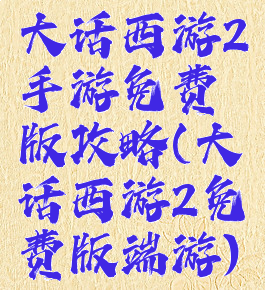 大话西游2
手游免费
版攻略(大
话西游2免
费版端游)